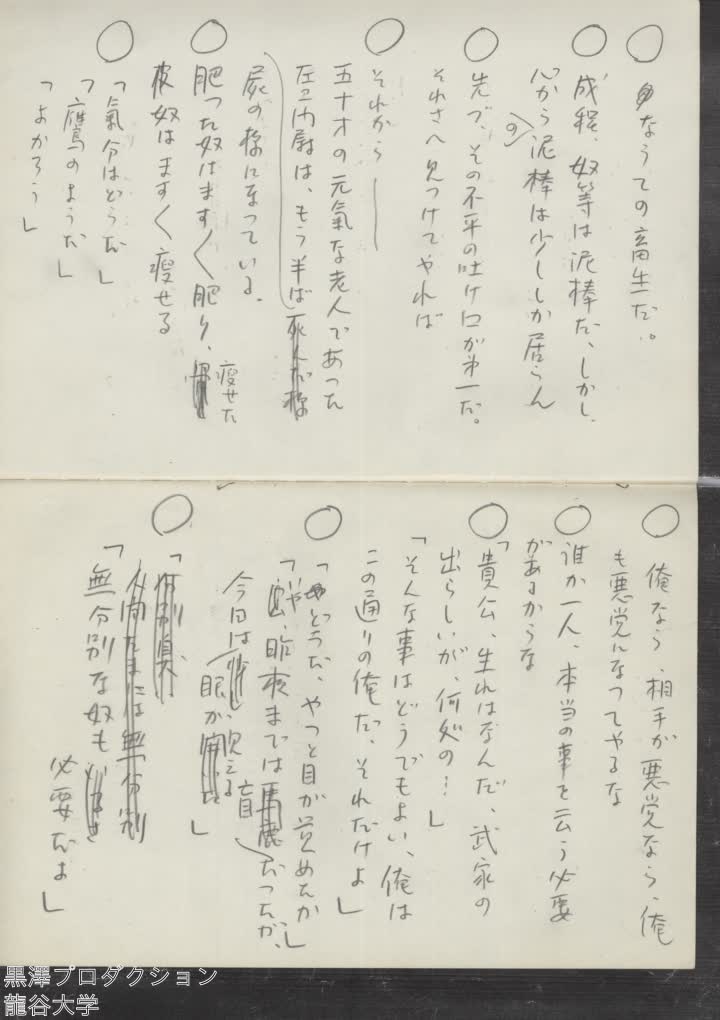 なうての畜生だ。
成程、奴等は泥棒だ、しかし、
心から(の)泥棒は少ししか居らん
先づ、その不平の吐け口が第一だ。
それさへ見つけてやれば
それから―
五十才の元氣な老人であった
左ェ門尉は、もう半ば死人の様
屍の様になっている。
肥った奴はます〱肥り、痩せた
皮奴はます〱瘦せる
「氣分はどうだ」
「鷹のようだ」
「よかろう」
俺なら、相手が悪党なら、俺
も悪党になってやるな
誰か一人、本当の事を云う必要
があるからな
「貴公、生れはなんだ、武家の
出らしいが、何処の…」
「そんな事はどうでもよい、俺は
この通りの俺だ、それだけよ」
「どうだ、やっと目が覚めたか」
「や、昨夜までは馬鹿盲だったが、
今日は眼が見える」
「分別臭、
人間たまには無分別
「無分別な奴も
必要だよ」
黒澤プロダクション
龍谷大学